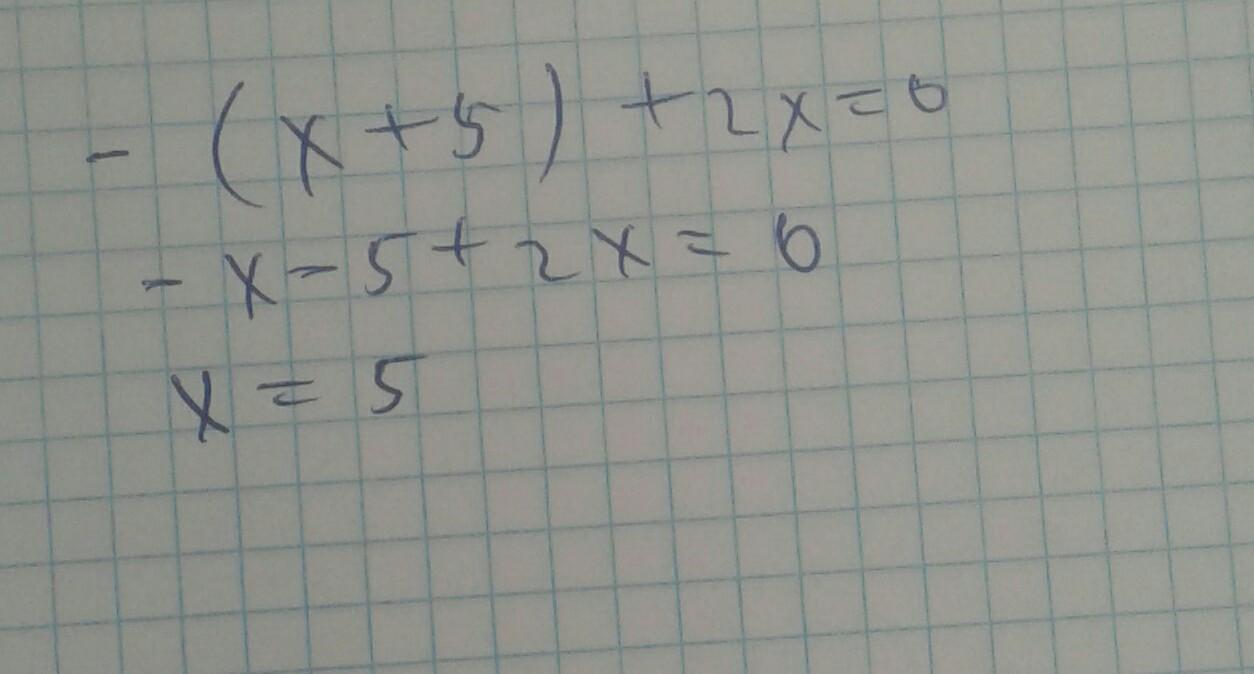 - (x + 5) + 2x = 0
- x - 5 + 2x = 0
x = 5